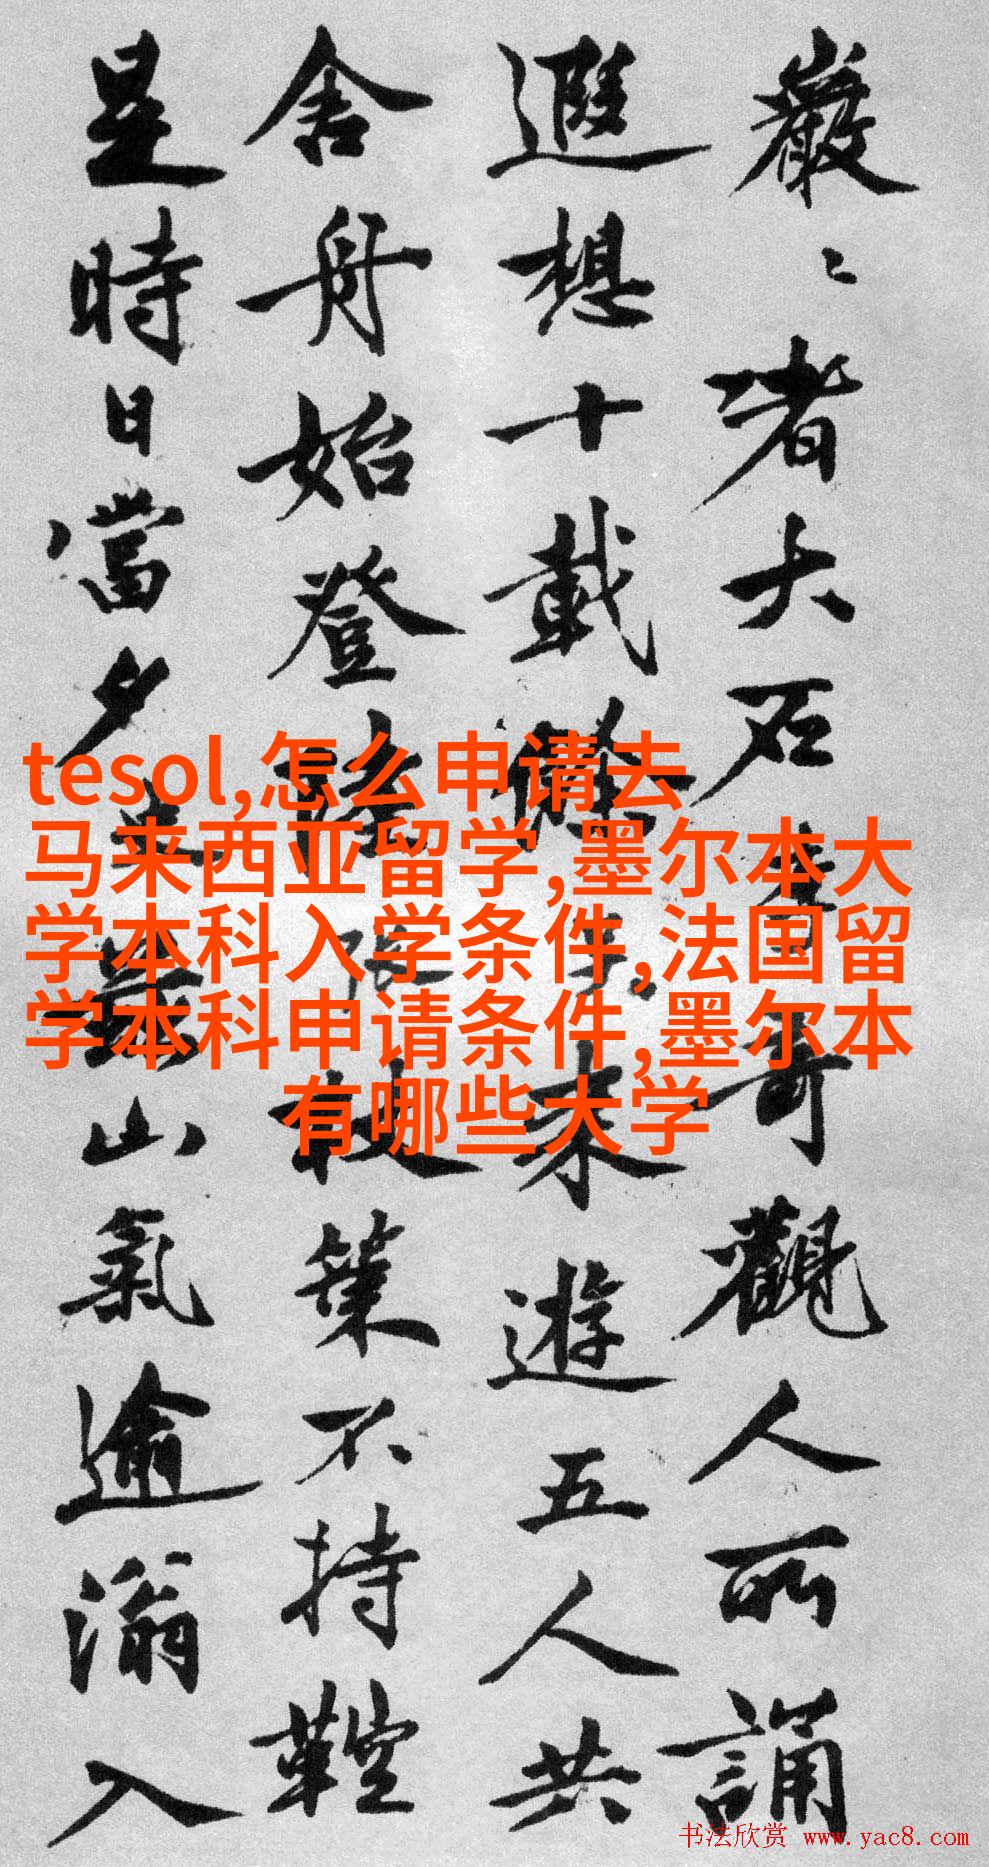 巖〻者大石 奇觀人所誦
遐想十載 來遊五人共
舍舟始登陸 杖策不持鞚
是時日當夕 山氣逾滃入
tesol,怎么申请去
马来西亚留学,墨尔本大
学本科入学条件,法国留
学本科申请条件,墨尔本
有哪些大学
书法欣赏 www.yac8.com